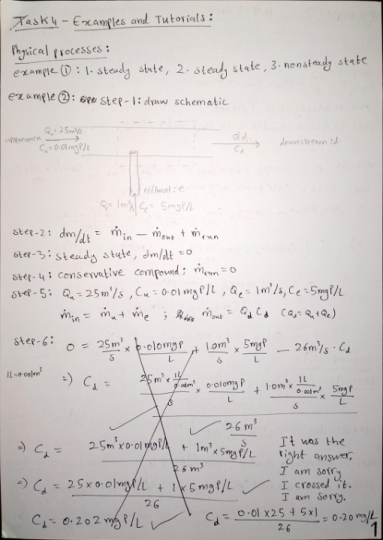 Task 4 - Examples and Tutorials:
Physical processes:
example ①: 1. steady state, 2. steady state, 3. nonsteady state
example ②: step-1: draw schematic
Qu = 25m³/s
Cu = 0.01mgP/L
Qd
Cd
downstream
effluent
Qe = 1m³/s Ce = 5mgP/L
step-2: dm/dt = ṁin - ṁout + ṁrxn
step-3: steady state, dm/dt = 0
step-4: conservative compound: ṁrxn = 0
step-5: Qu = 25m³/s, Cu = 0.01mgP/L, Qe = 1m³/s, Ce = 5mgP/L
ṁin = ṁu + ṁe ; ṁout = Qd Cd (Qd = Qu + Qe)
step-6: 0 = 25m³/s × 0.010mgP/L + 1.0m³/s × 5mgP/L - 26m³/s · Cd
1L = 0.001m³ ⇒ Cd = 25m³ × 1L/0.001m³ / s × 0.010mgP/L + 1.0m³ × 1L/0.001m³ / s × 5mgP/L
26 m³/s
⇒ Cd = 25m³ × 0.01mgP/L + 1m³ × 5mgP/L / 26m³
⇒ Cd = 25 × 0.01mgP/L + 1 × 5mgP/L / 26
Cd = 0.202 mgP/L
It was the
right answer.
I am sorry
I crossed it.
I am sorry.
Cd = 0.01 × 25 + 5×1 / 26 = 0.20 mg/L
1